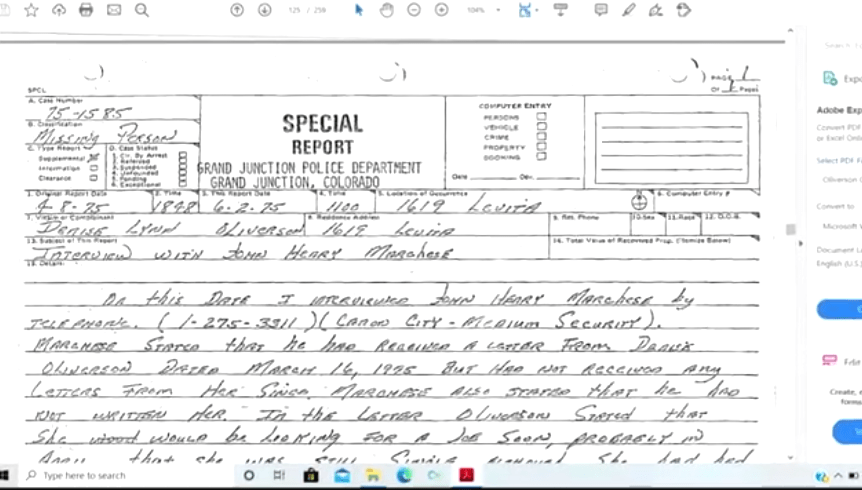 125 / 259
104%
PAGE 1
OF 1 Pages
SPCL
A. Case Number
75-1585
B. Classification
MISSING PERSON
C. Type Report
D. Case Status
Supplemental
Information
Clearance
1. Clr. By Arrest
3. Suspended
4. Unfounded
5. Pending
6. Exceptional
SPECIAL
REPORT
GRAND JUNCTION POLICE DEPARTMENT
GRAND JUNCTION, COLORADO
COMPUTER ENTRY
PERSONS
VEHICLE
CRIME
PROPERTY
BOOKING
Date
1. Original Report Date
2. Time
3. This Report Date
4. Time
5. Location of Occurrence
6. Computer Entry #
4-8-75
1848
6-2-75
1100
1619 LEVITA
7. Victim or Complainant
8. Residence Address
9. Res. Phone
10. Sex
11. Race
12. D.O.B.
DENISE LYNN OLIVERSON
1619 LEVITA
13. Subject of This Report
14. Total Value of Recovered Prop. (Itemize Below)
INTERVIEW WITH JOHN HENRY MARCHESE
15. Details
ON this DATE I INTERVIEWED JOHN HENRY MARCHESE by
TELEPHONE. (1-275-3311)(CANON CITY - MEDIUM SECURITY).
MARCHESE STATED that he had RECEIVED A LETTER FROM DENISE
OLIVERSON DATED MARCH 16, 1975 BUT HAD NOT RECEIVED Any
LETTERS FROM HER SINCE. MARCHESE ALSO STATED THAT he HAD
NOT WRITTEN HER. IN the LETTER OLIVERSON STATED that
She WOULD be LOOKING FOR A JOB SOON, PROBABLY IN
APRIL that she WAS STILL She had had
Adobe Exp
Convert PDF
or Excel Onlin
Select PDF F
Oliverson
Convert to
Microsoft
Document La
English (U.S.)
Edit
Create, e
forms
Type here to search